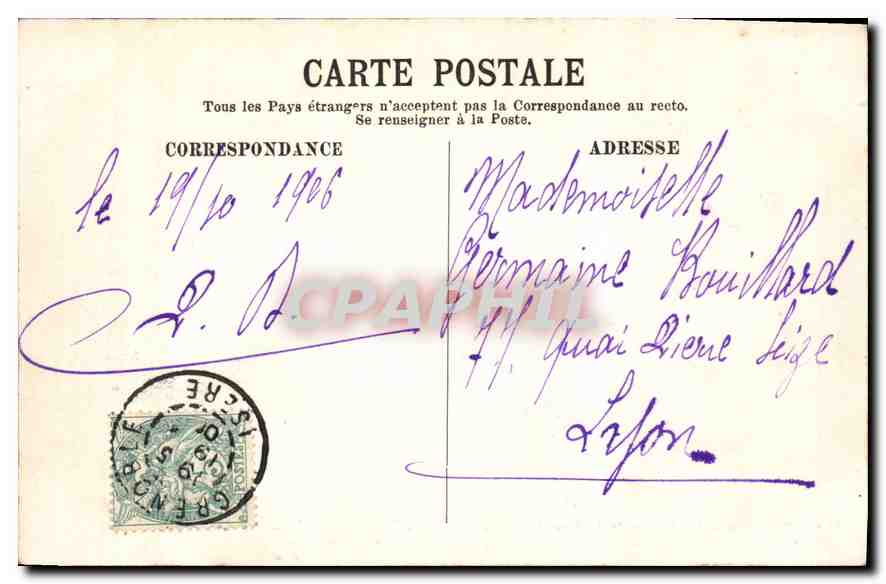 CARTE POSTALE
Tous les Pays étrangers n'acceptent pas la Correspondance au recto.
Se renseigner à la Poste.
CORRESPONDANCE
le 19/10 1906
P. B.
ADRESSE
Mademoiselle
Germaine Bouillard
77, Quai Pierre Seize
Lyon
CPAPHIL
GRENOBLE
ISÈRE
POSTES